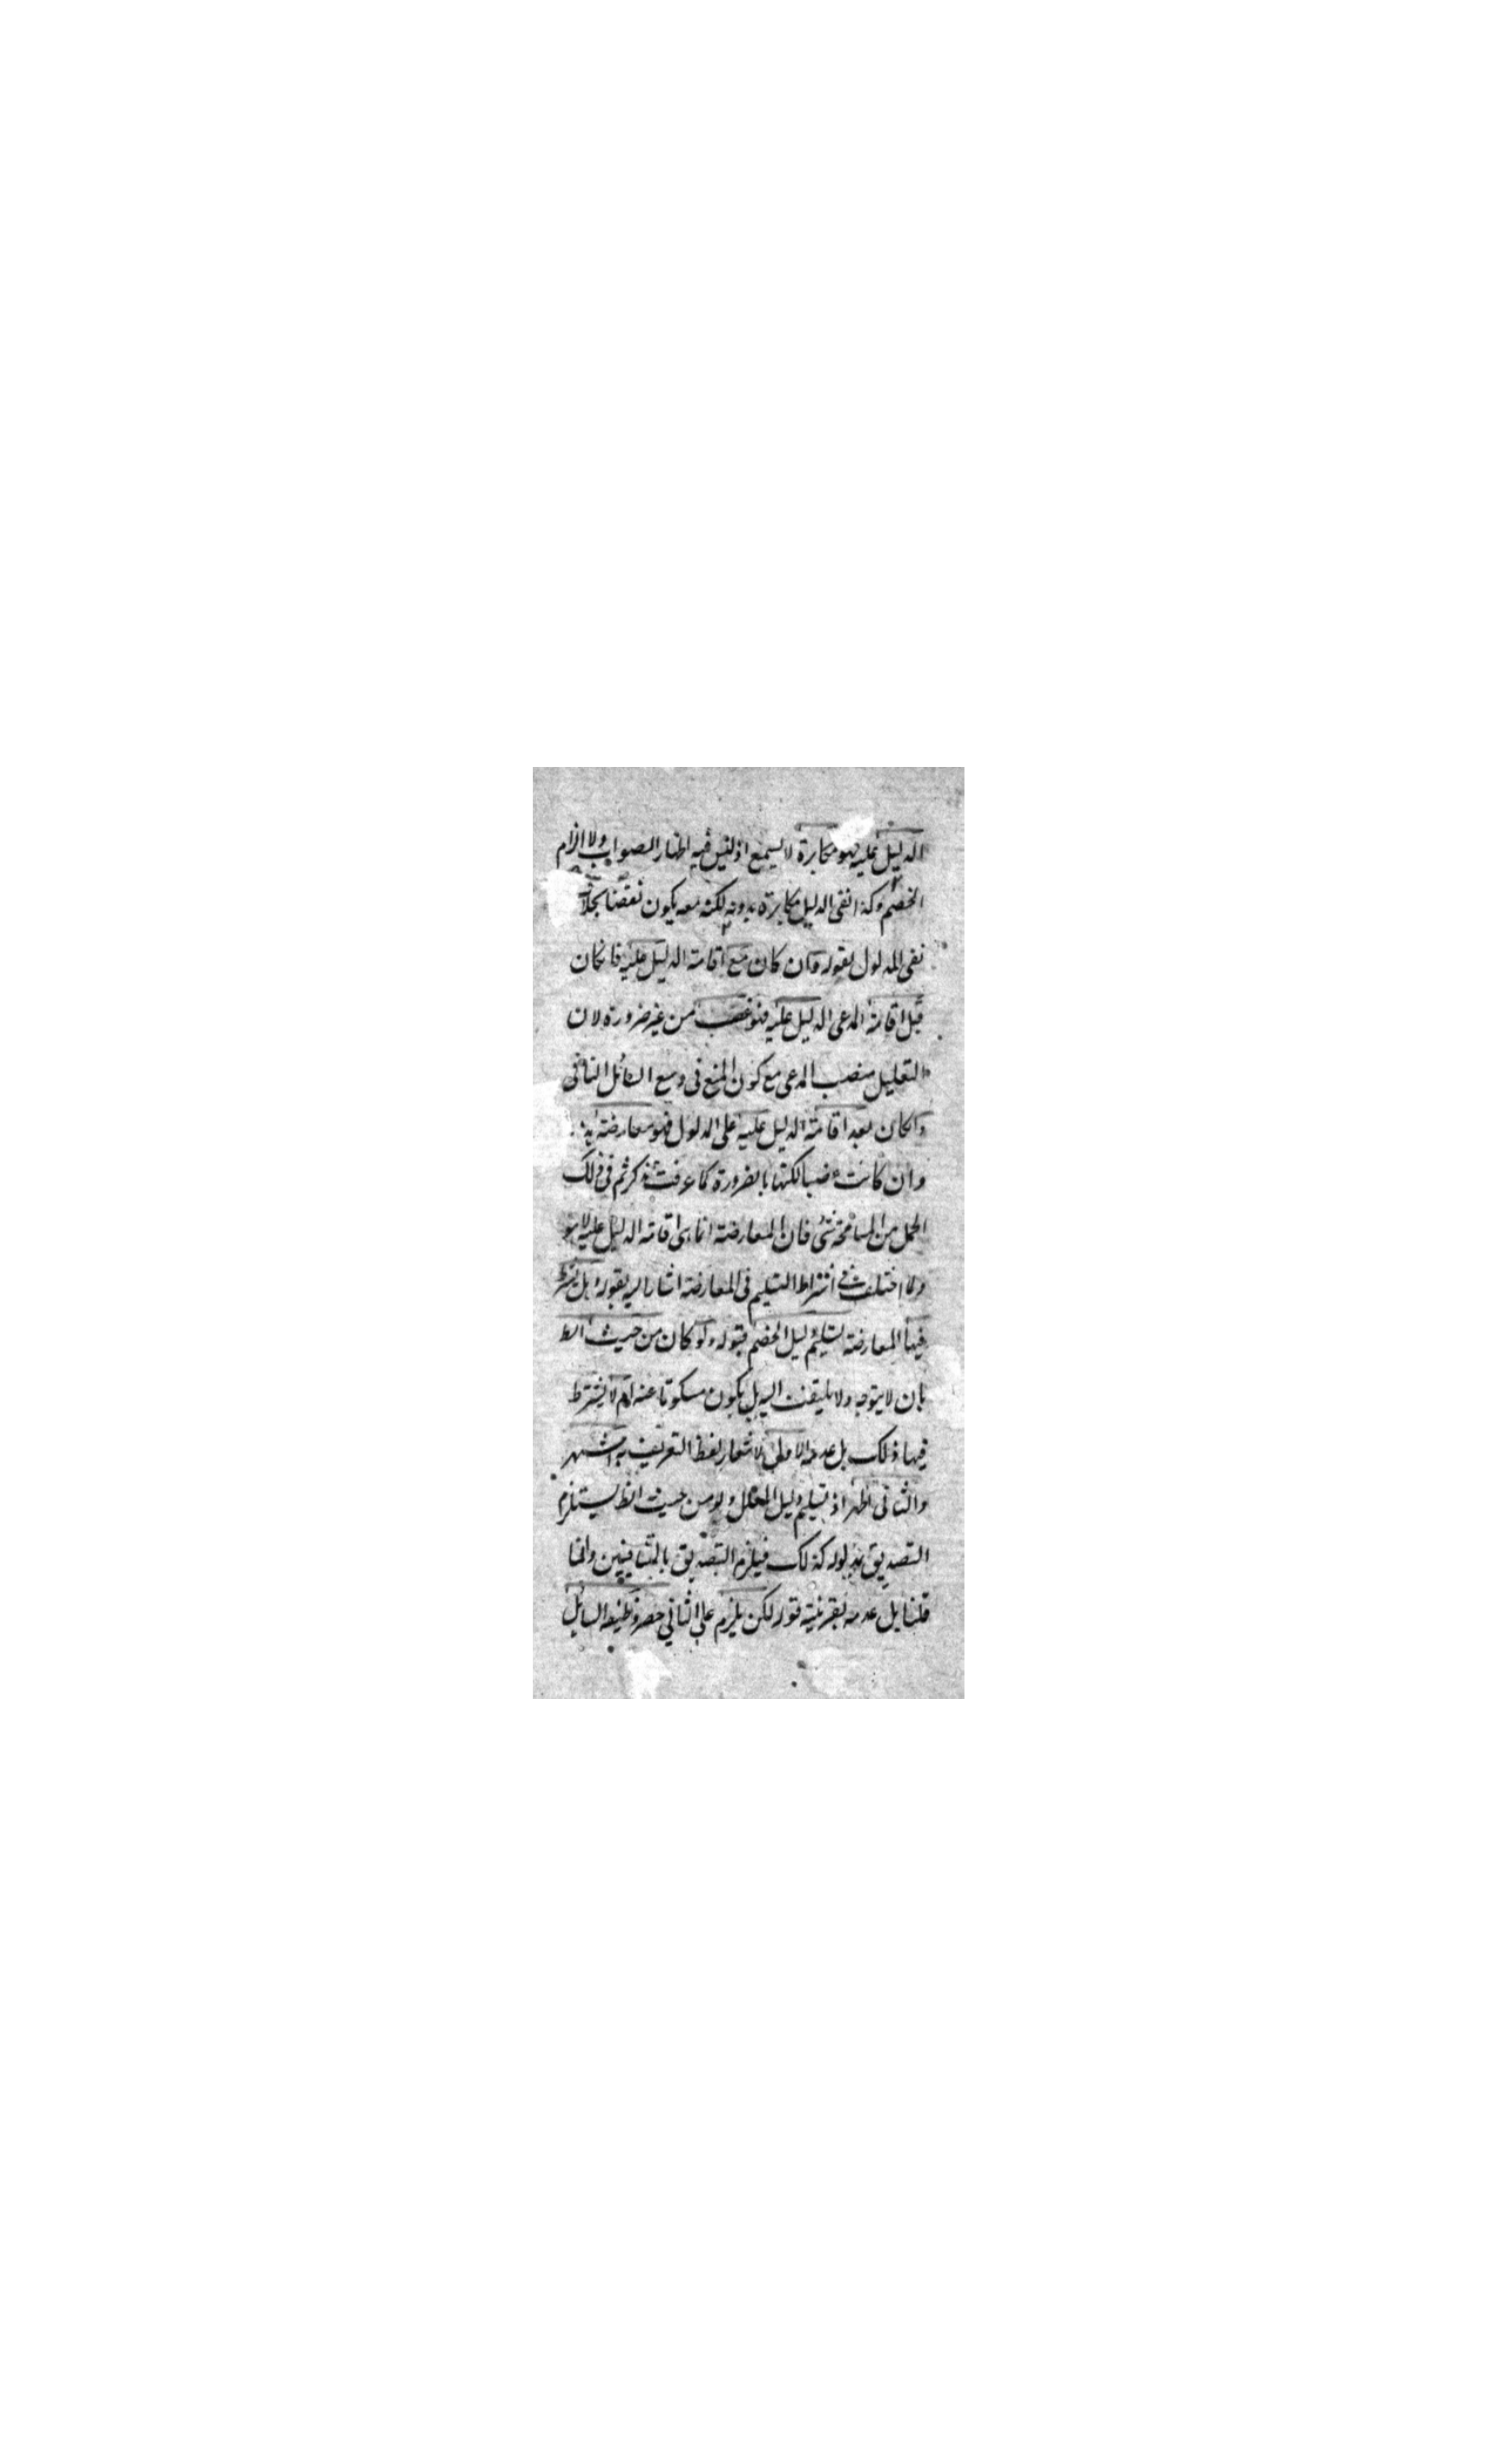 الدليل عليه فهو مكابرة لا يسمع اذ ليس فيه اظهار الصواب ولا الزام
الخصم وكذا نفى الدليل مكابرة بدونه لكنه معه يكون نقضا بخلاف
نفى المدلول بقوله وان كان مع اقامة الدليل عليه فانكان
قبل اقامة المدعى الدليل عليه فهو غصب من غير ضرورة لان
التعليل منصب المدعى مع كون المنع فى وسع السائل الثانى
وانكان بعد اقامة الدليل عليه على المدلول فهو معارضة
وان كانت غصبا لكنها بالضرورة كما عرفت فتذكر ثم فى ذلك
الحمل من المسامحة شئ فان المعارضة انما هى اقامة الدليل عليه لا هو
ولما اختلف فى اشتراط التسليم فى المعارضة اشار اليه بقوله هل يشترط
فيها المعارضة تسليم دليل الخصم قبوله ولو كان من حيث الظ
بان لا يتوجه ولا يلتفت اليه بل يكون مسكوتا عنه ام لا يشترط
فيها ذلك بل عدمه الاول لاشعار لفظ التعريف به اشهر
والثانى اظهر اذ تسليم دليل المعلل ولو من حيث الظ يستلزم
التصديق بمدلوله كذلك فيلزم التصديق بالمتنافيين وانما
قلنا بل عدمه بقرينة قوله لكن يلزم على الثانى حصر وظيفة السائل